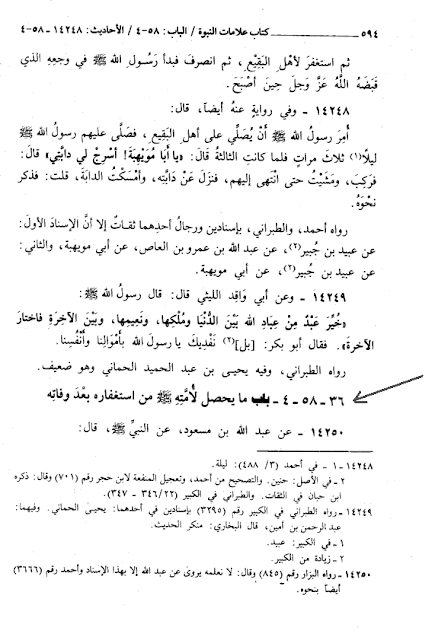 ٥٩٤ كتاب علامات النبوة / الباب: ٥٨-٤ / الأحاديث: ١٤٢٤٨ - ٥٨-٤
ثم استغفرَ لأهلِ البَقِيْعِ، ثم انصرفَ فبدأَ رَسُولِ اللهِ ﷺ في وجعِهِ الذي
قَبَضَهُ اللَّهُ عَزَّ وَجلَ حِينَ أَصْبَحَ.
١٤٢٤٨ - وفي روايةٍ عنهُ أيضاً، قال:
أُمِرَ رسولُ اللهِ ﷺ أَنْ يُصَلِّيَ على أهلِ البَقِيعِ، فصَلَّى عليهم رسولُ اللهِ ﷺ
ليلًا(١) ثلاثَ مراتٍ فلما كانتِ الثالثةُ قالَ: «يا أَبَا مُوَيْهِبَةَ! أَسْرِجْ لي دابَّتِي» قالَ:
فرَكِبَ، ومَشَيْتُ حتى انْتَهى إليهم، فنزَلَ عَنْ دَابَّتِهِ، وأَمْسَكْتُ الدابةَ، قلت: فذكر
نحْوَهُ.
رواه أحمد، والطبراني، بإسنادين ورجالُ أحدِهما ثقاتٌ إلا أنَّ الإسنادَ الأولَ:
عن عبيد بن جُبير(٢)، عن عبد الله بن عمرو بن العاص، عن أبي مويهبة، والثاني:
عن عبيد بن جُبير(٢)، عن أبي مويهبة.
١٤٢٤٩ - وعن أبي وَاقِد الليثي قال: قال رسولُ اللهِ ﷺ:
«خُيِّرَ عَبْدٌ مِنْ عِبَادِ اللهِ بَيْنَ الدُّنْيَا ومُلْكِها، ونَعِيمِها، وبَيْنَ الآخِرَةِ فاختارَ
الآخرةَ». فقال أبو بكر: [بل](٢) نَفْدِيكَ يا رسولَ اللهِ بأَمْوَالِنا وأَنْفُسِنا.
رواه الطبراني، وفيه يحيى بن عبد الحميد الحماني وهو ضعيف.
٣٦ - ٥٨ - ٤ - باب ما يحصل لأُمَّتِهِ ﷺ من استغفاره بعْدَ وفاتِهِ
١٤٢٥٠ - عن عبد الله بن مسعود، عن النبيِّ ﷺ، قال:
١٤٢٤٨ - ١ - في أحمد (٣/ ٤٨٨): ليلة.
٢ - في الأصل: حنين. والتصحيح من أحمد، وتعجيل المنفعة لابن حجر رقم (٧٠١) وقال: ذكره
ابن حبان في الثقات. والطبراني في الكبير (٢٢/ ٣٤٦ - ٣٤٧).
١٤٢٤٩ - رواه الطبراني في الكبير رقم (٣٢٩٥) بإسنادين في أحدهما: يحيى الحماني. وفيهما:
عبد الرحمن بن آمين، قال البخاري: منكر الحديث.
١ - في الكبير: عبيد.
٢ - زيادة من الكبير.
١٤٢٥٠ - رواه البزار رقم (٨٤٥) وقال: لا نعلمه يروى عن عبد الله إلا بهذا الإسناد وأحمد رقم (٣٦٦٦)
أيضاً بنحوه.